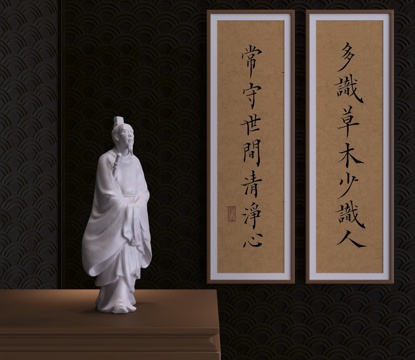 多識草木少識人
常守世間清淨心